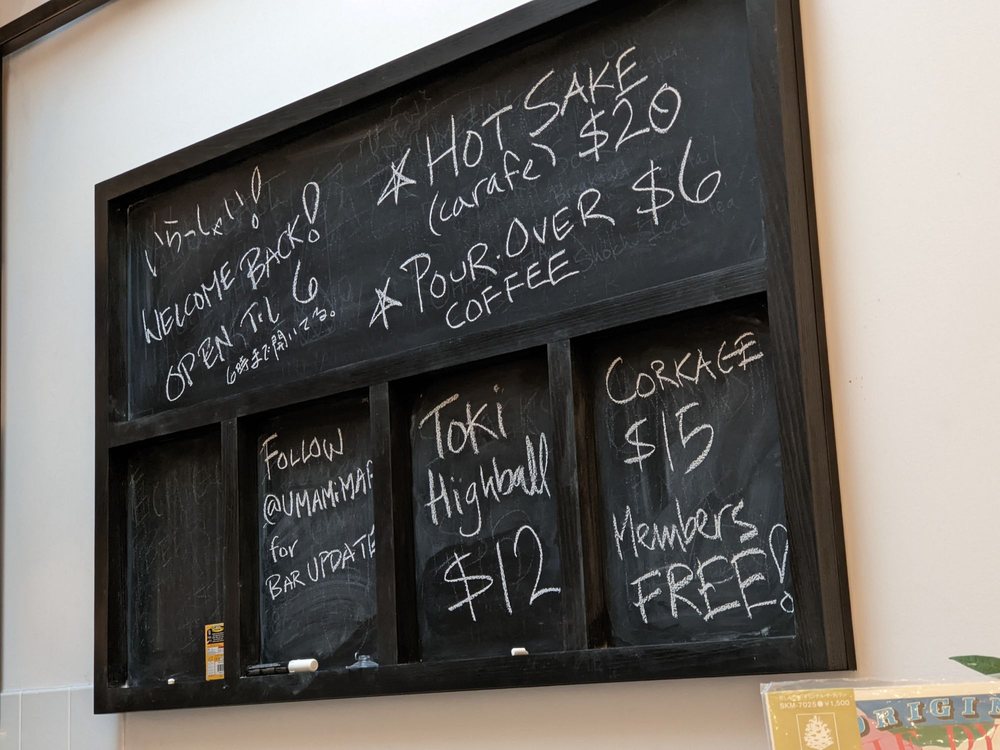 いらっしゃい!
WELCOME BACK!
OPEN TIL 6
6時まで開いてる。
★ HOT SAKE
(carafe) $20
★ POUR.OVER $6
COFFEE
FOLLOW
@UMAMIMAR
for
BAR UPDATE
TOKi
Highball
$12
CORKAGE
$15
Members
FREE!
BKM-7025 ¥1,500
ORIGIN